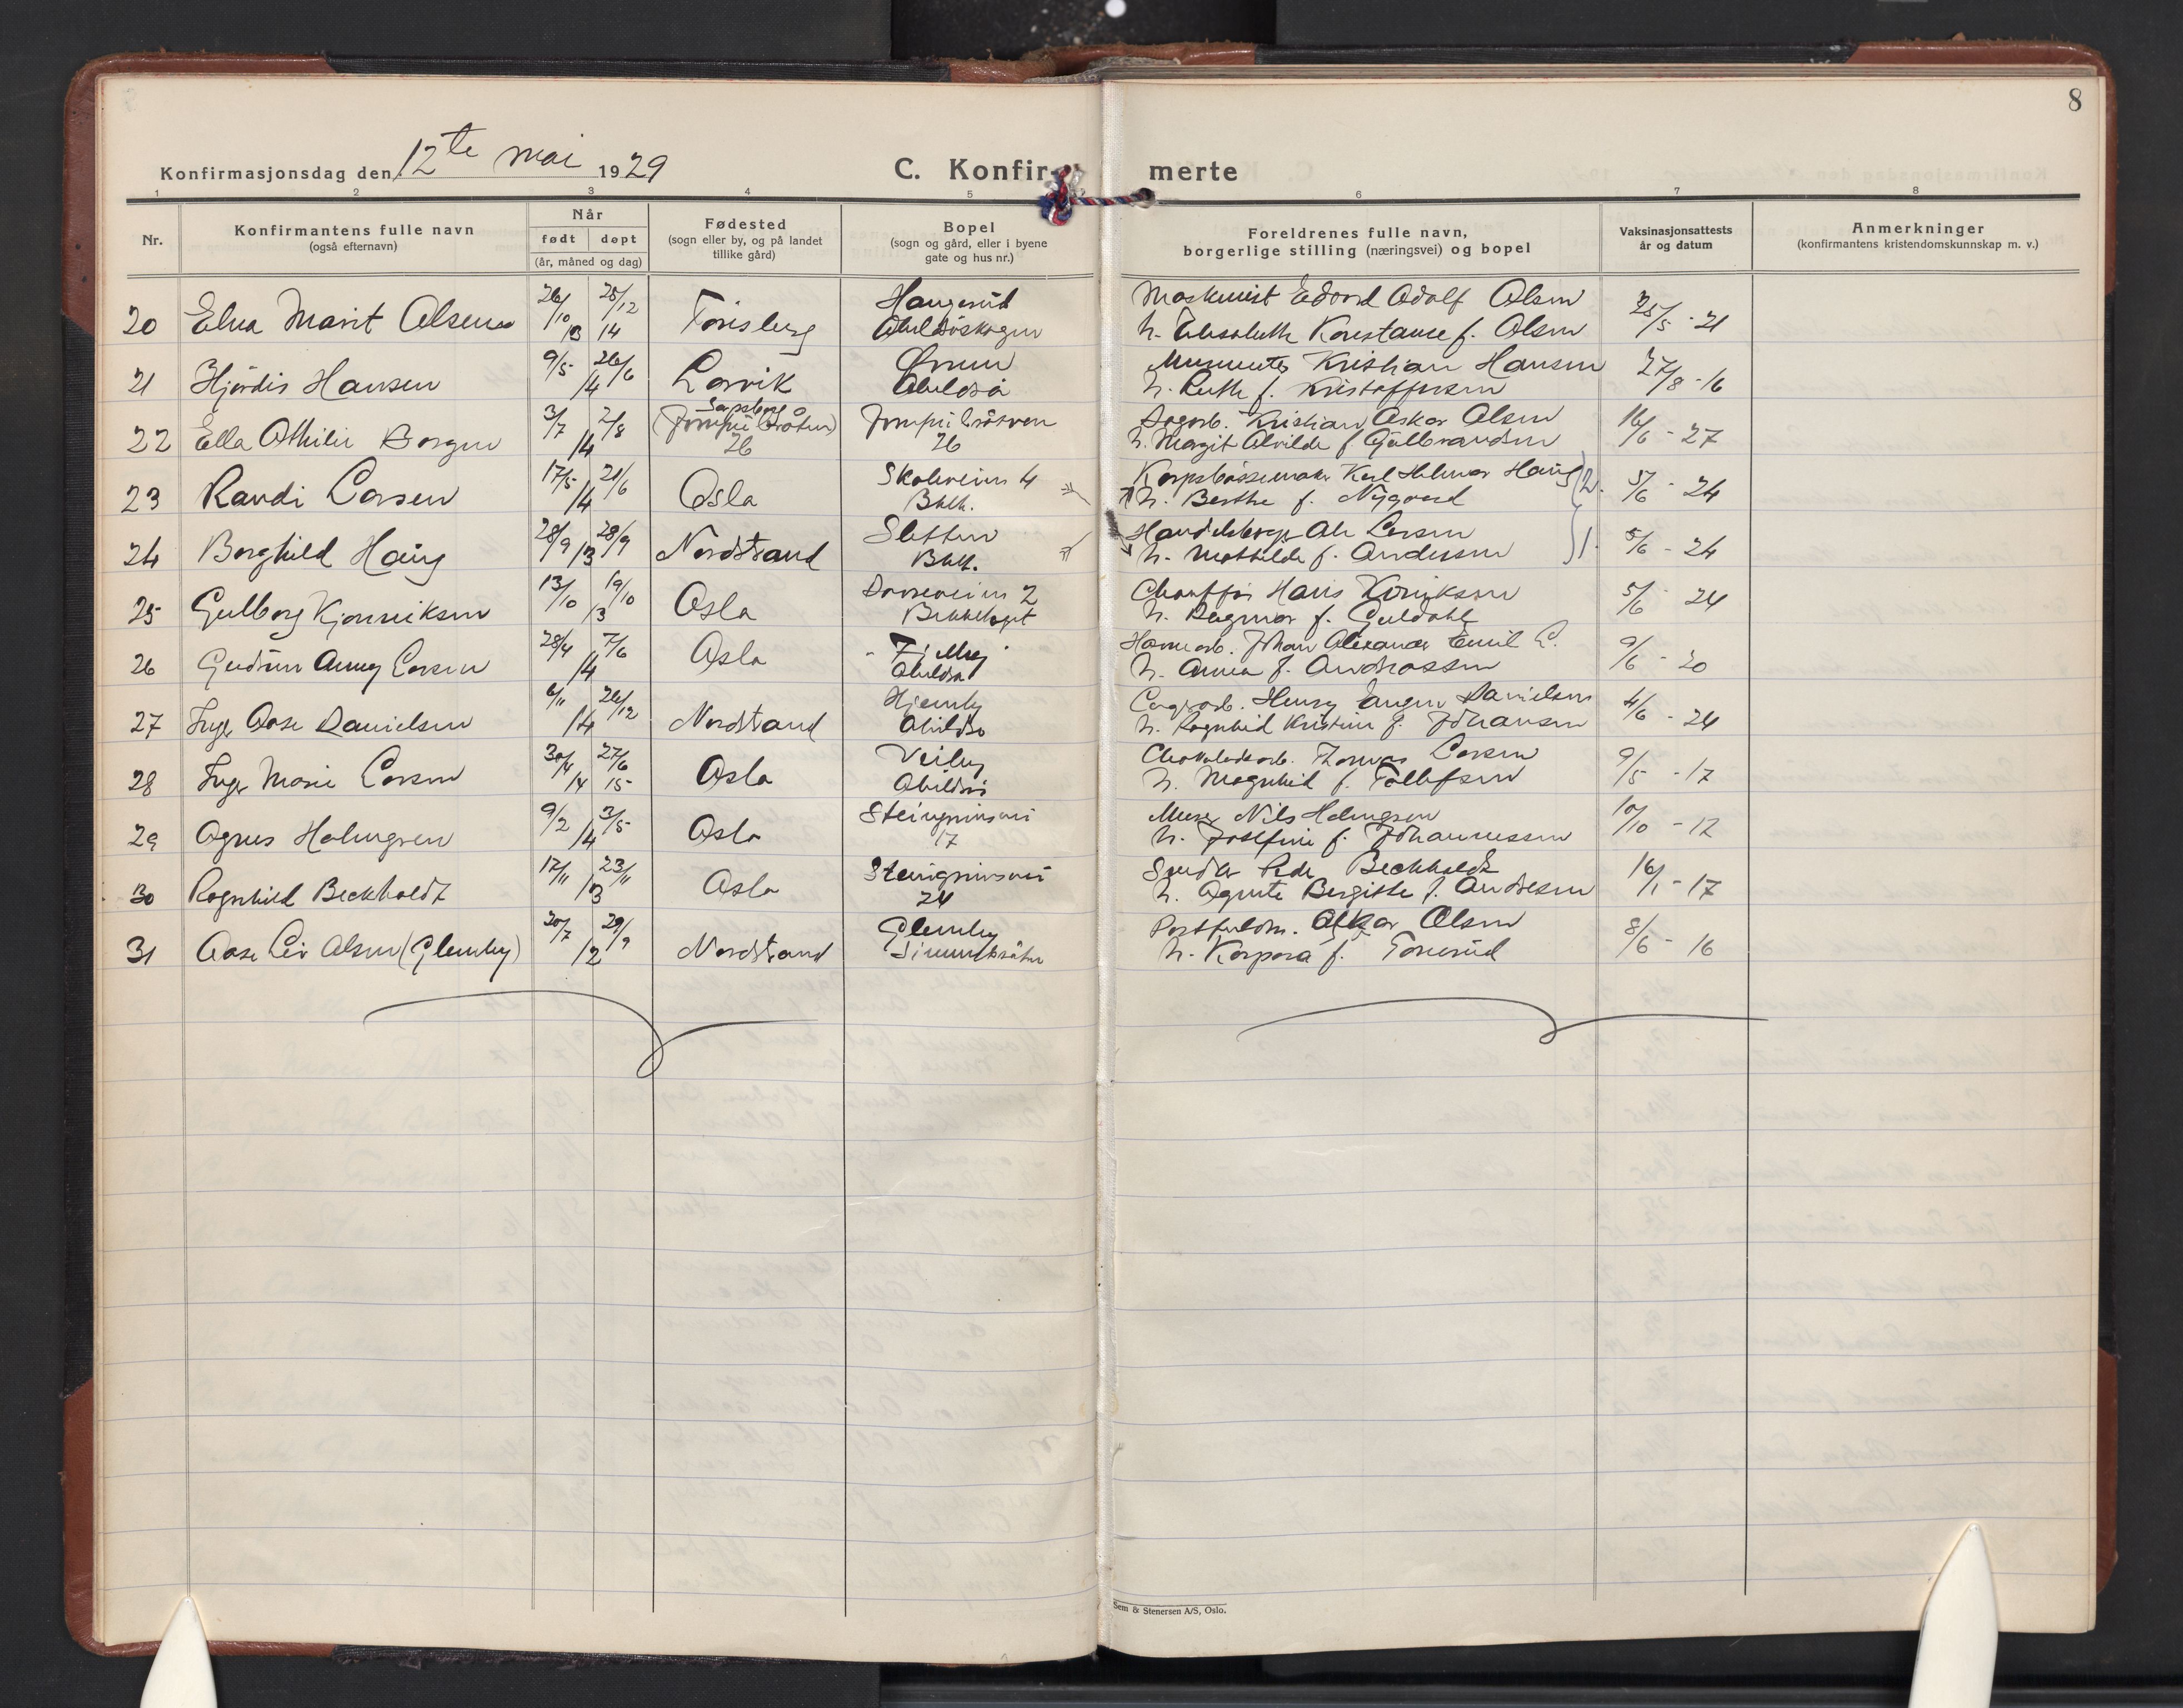 8
Konfirmasjonsdag den 12te mai 1929
C. Konfir-
merte
1 2 3 4 5 6 7 8
Nr.
Konfirmantens fulle navn
(også efternavn)
Når
født døpt
(år, måned og dag)
Fødested
(sogn eller by, og på landet
tillike gård)
Bopel
(sogn og gård, eller i byene
gate og hus nr.)
Foreldrenes fulle navn,
borgerlige stilling (næringsvei) og bopel
Vaksinasjonsattests
år og datum
Anmerkninger
(konfirmantens kristendomskunnskap m. v.)
20 Elna Marit Olsen 26/10 13 25/12 14 Tønsberg Haugerud
Maskinist Edvard Adolf Olsen
h. Elisabeth Konstanse f. Olsen 25/5 - 21
21 Hjørdis Hansen 9/5 26/6 14 Larvik Abildsø
Kristian Hansen
h. Ruth f. Kristoffersen 27/8 - 16
22 Ella Othilie Borgen 3/7 2/8 14 Sarpsborg 26 26
Kristian Oskar Olsen
h. Margit Alvilde f. Gulbrandsen 16/6 - 27
23 Randi Larsen 17/5 21/6 14 Oslo Skoleveien 4
Bkl.
Karl Hilmar Haug 2.
h. Berthe f. Nygaard 5/6 - 24
24 Borghild Haug 28/9 28/9 13 Nordstrand Sletten
Bkl.
Ole Larsen
h. Mathilde f. Andersen 1. 5/6 - 24
25 Gulborg Kjønniksen 13/10 19/10 13 Oslo 2
Bekkelaget
Chauffør Hans
h. Dagmar f. Guldahl 5/6 24
26 Gudrun Anny Larsen 28/4 7/6 14 Oslo
Abildsø
Havnearb. Johan Alexander Emil L.
h. Anna f. Andreassen 9/6 - 20
27 Inger Aase Danielsen 6/11 26/12 14 Nordstrand Hjemly
Abildsø
Henry Danielsen
h. Ragnhild Kristine f. Johansen 4/6 - 24
28 Inger Marie Larsen 30/4 14 27/6 15 Oslo Veiby
Abildsø
Chokoladearb. Thomas Larsen
h. Magnhild f. Tollefsen 9/5 - 17
29 Agnes Holmgren 9/2 3/5 14 Oslo
17
Murer Nils Holmgren
h. Josefine f. Johannessen 10/10 - 12
30 Ragnhild Beckholdt 12/11 23/11 13 Oslo
24
Snedker Peder Beckholdt
h. Agnete Bergitte f. Andresen 16/1 - 17
31 Aase Liv Olsen (Glemby) 20/7 29/9 12 Nordstrand Glemby
Oskar Olsen
h. Kaspara f. Tonerud 8/6 - 16
Sem & Stenersen A/S, Oslo.